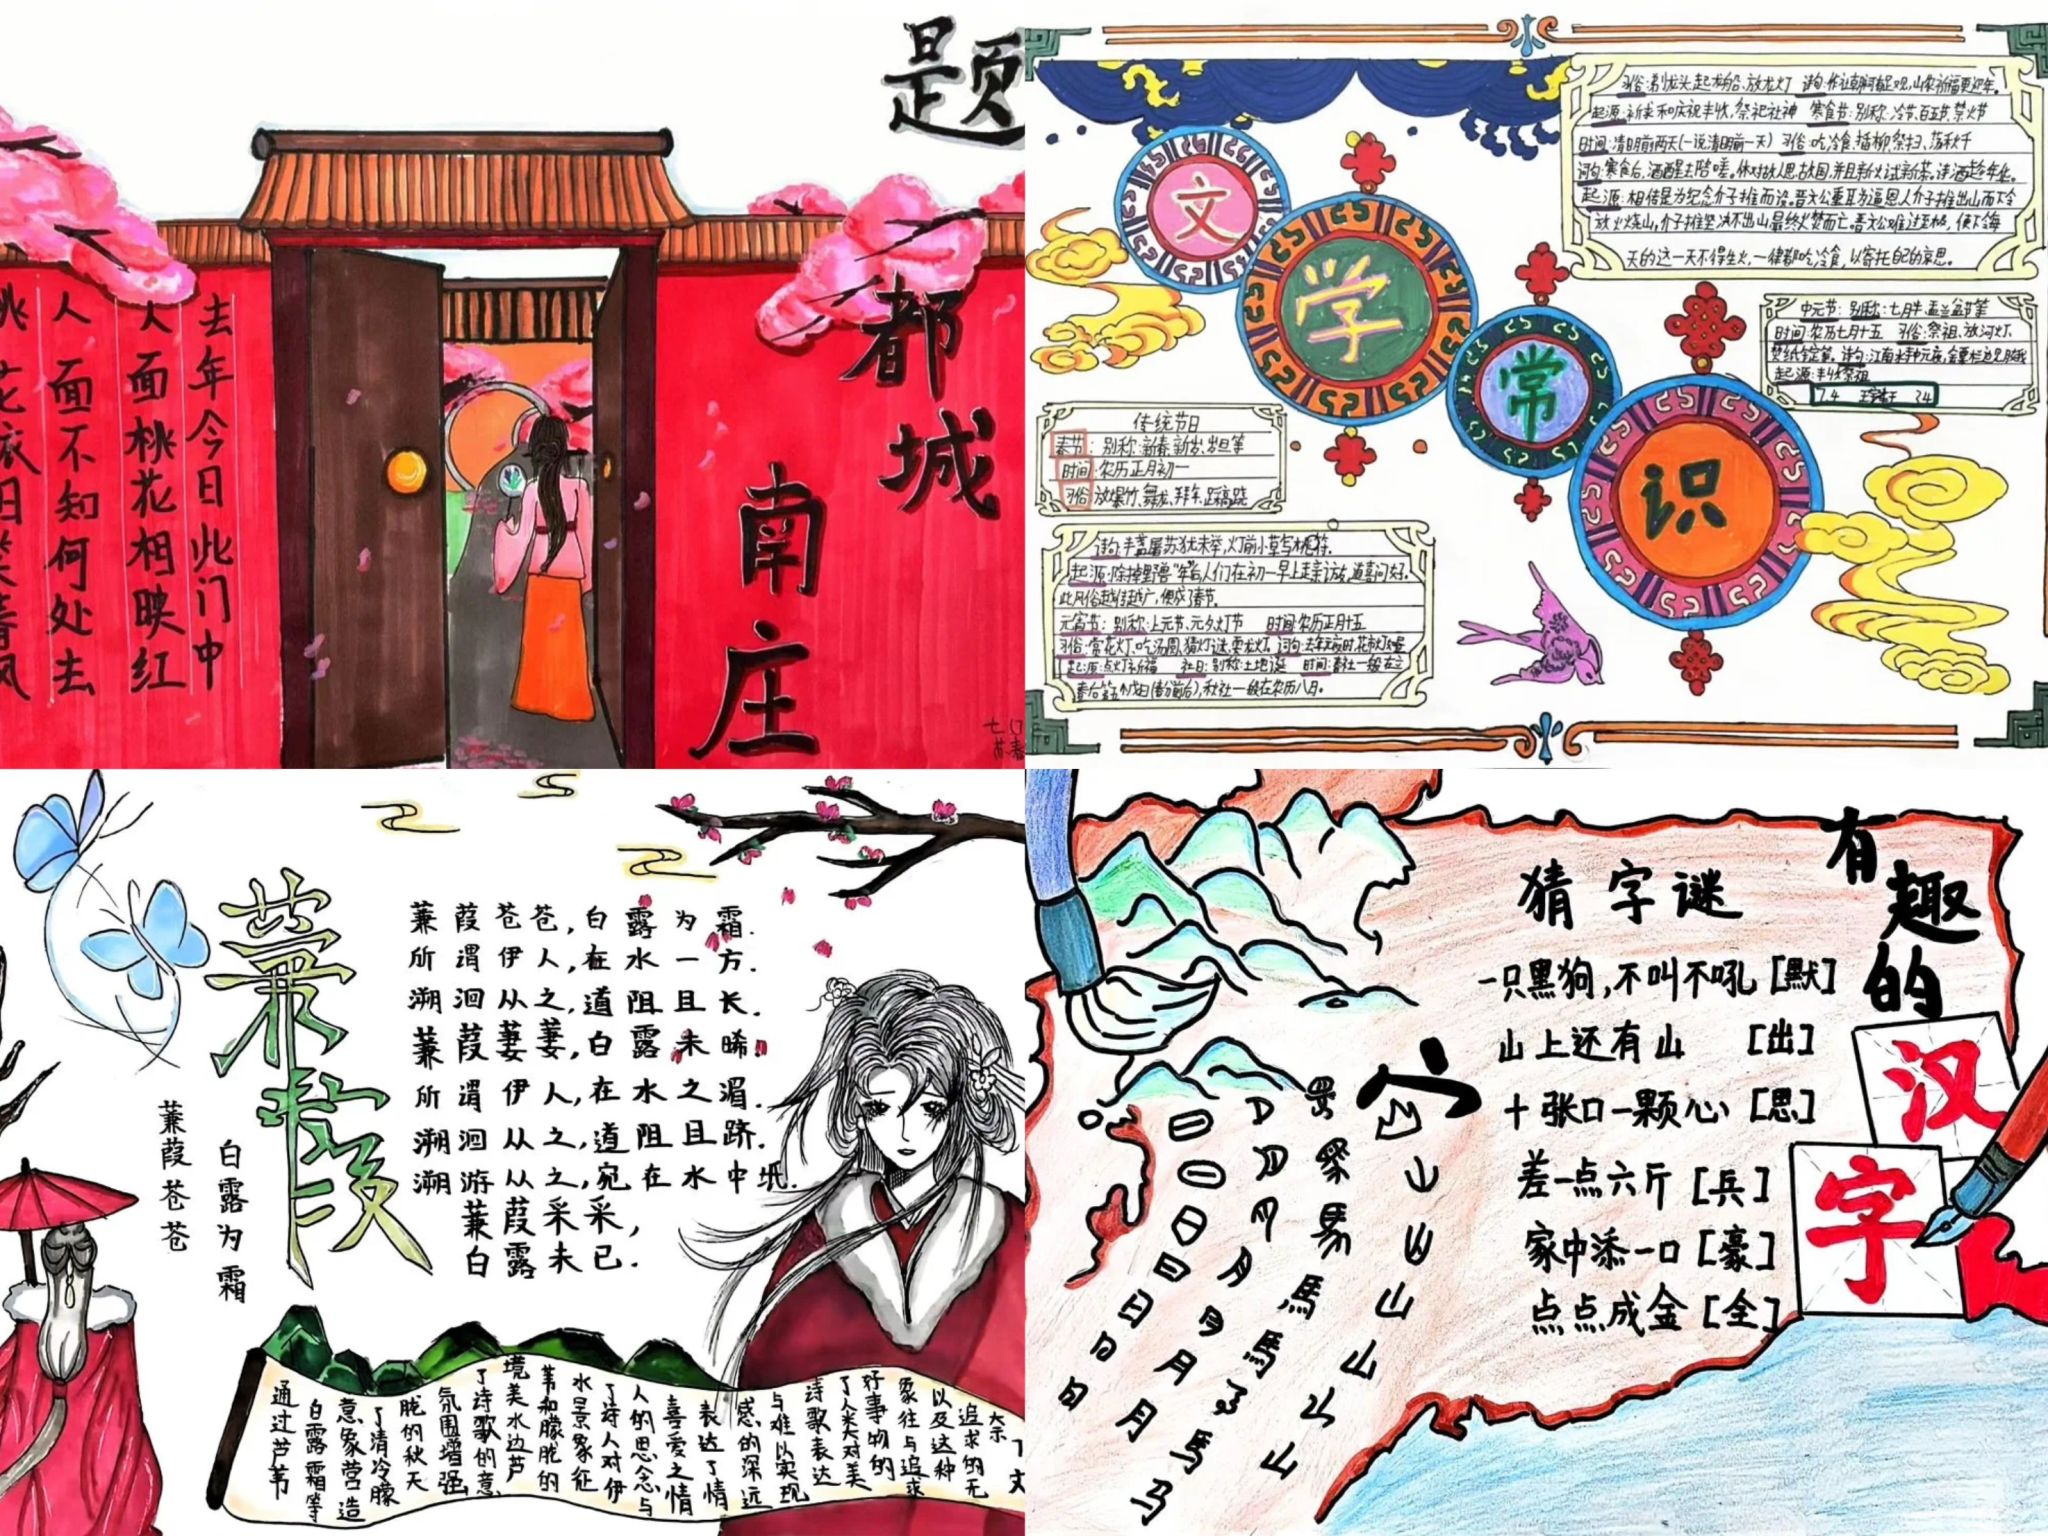 题
都城
南庄
去年今日此门中
人面桃花相映红
人面不知何处去
桃花依旧笑春风
文学常识
习俗:剃龙头,起龙船、放龙灯
起源:祈求和庆祝丰收,祭祀社神 寒食节:别称:冷节、百五节、禁火节
时间:清明前两天(一说清明前一天) 习俗:吃冷食,插柳,祭扫、荡秋千
词句:寒食后,酒醒却咨嗟。休对故人思故国,并且新火试新茶,诗酒趁年华。
起源:相传是为纪念介子推而设。晋文公重耳为逼恩人介子推出山而下令
放火烧山,介子推坚决不出山最终火焚而亡。晋文公难过至极,便下令每
天的这一天不得生火,一律都吃冷食,以寄托自己的哀思。
中元节:别称:七月半,盂兰盆节等
时间:农历七月十五 习俗:祭祖、放河灯、
起源:丰收祭祖
7.4
24
传统节日
春节:别称:新春,新岁,岁旦等
时间:农历正月初一
习俗 放爆竹、舞龙、拜年、踩高跷
诗句:半盏屠苏犹未举,灯前小草写桃符.
起源:除掉野兽"年"后人们在初一早上走亲访友,道喜问好。
此风俗越传越广,便成了春节。
元宵节:别称:上元节、元夕、灯节 时间:农历正月十五
习俗:赏花灯、吃汤圆,猜灯谜,耍龙灯。词句:去年元夜时,花市灯如昼
起源:点灯祈福 社日:别称:土地诞 时间:春社一般在立
春后第五个戊日(春分前后),秋社一般在农历八月。
蒹葭
蒹葭苍苍
白露为霜
蒹葭苍苍,白露为霜.
所谓伊人,在水一方.
溯洄从之,道阻且长.
蒹葭萋萋,白露未晞.
所谓伊人,在水之湄.
溯洄从之,道阻且跻.
溯游从之,宛在水中坻.
蒹葭采采,
白露未已.
通过芦苇
白露霜等
意象营造
了清冷朦
胧的秋天
氛围增强
了诗歌的意
境美水边芦
苇和朦胧的
水景象征
了诗人对伊
人的思念与
喜爱之情
表达了情
感的深远
与难以实现
诗歌表达
了人类对美
好事物的
向往与追求
以及这种
追求的无
有趣的
汉字
猜字谜
一只黑狗,不叫不吼[默]
山上还有山 [出]
十张口一颗心[思]
差一点六斤[兵]
家中添一口[豪]
点点成金[全]
日日日
月月月
馬馬马
山山山山山山